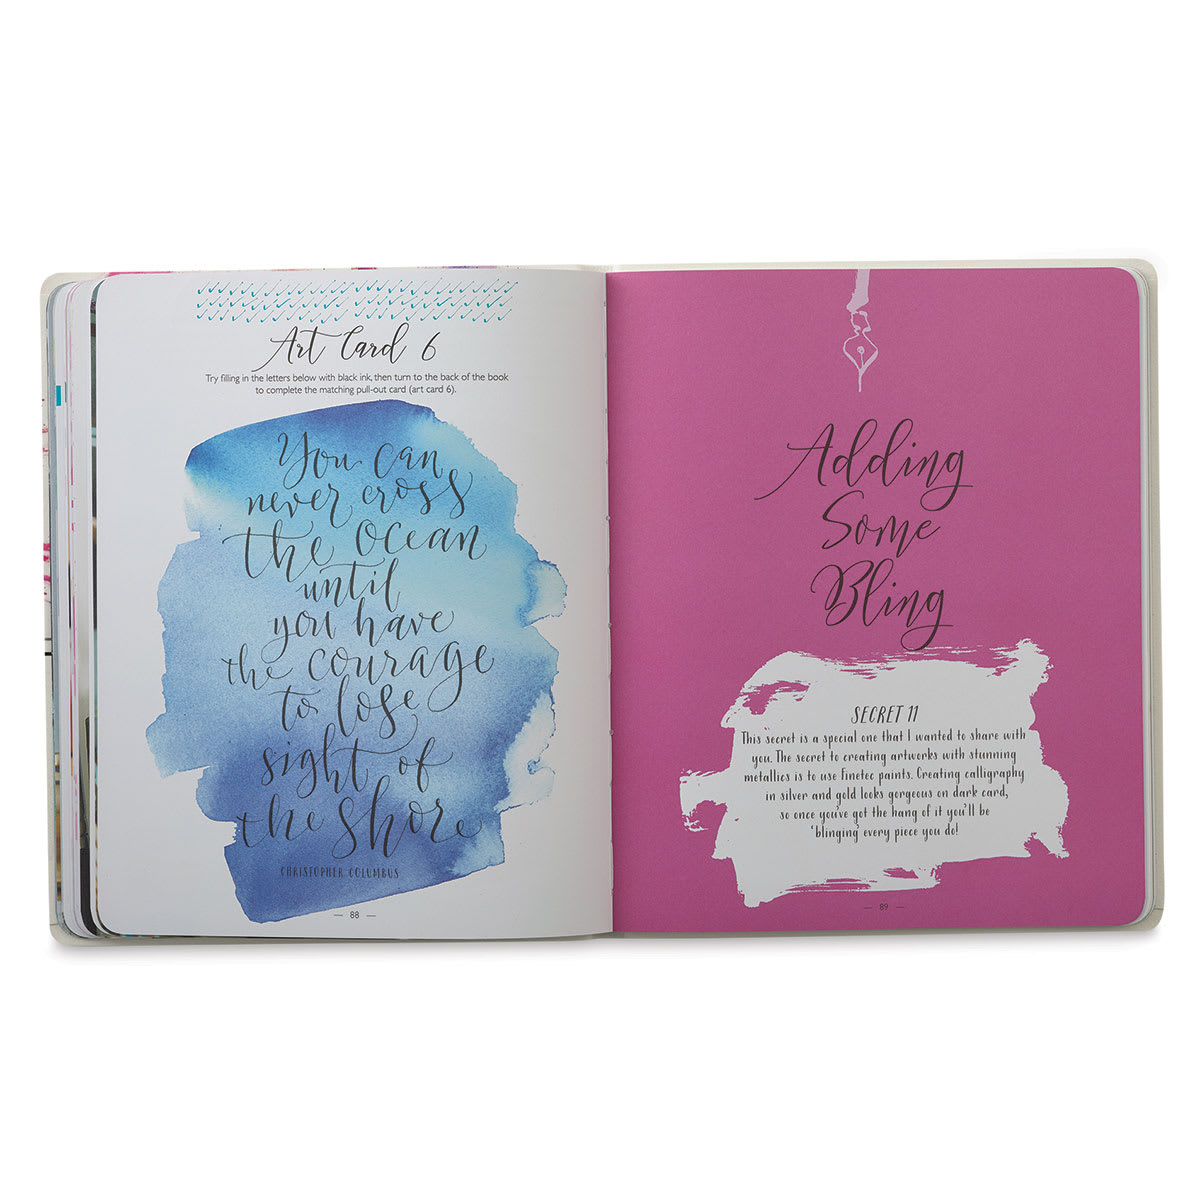 Art Card 6
Try filling in the letters below with black ink, then turn to the back of the book
to complete the matching pull-out card (art card 6).
You can
never cross
the ocean
until
you have
the courage
to lose
sight of
the shore
CHRISTOPHER COLUMBUS
— 88 —
Adding
Some
Bling
SECRET 11
This secret is a special one that I wanted to share with
you. The secret to creating artworks with stunning
metallics is to use Finetec paints. Creating calligraphy
in silver and gold looks gorgeous on dark card,
so once you've got the hang of it you'll be
'blinging' every piece you do!
— 89 —